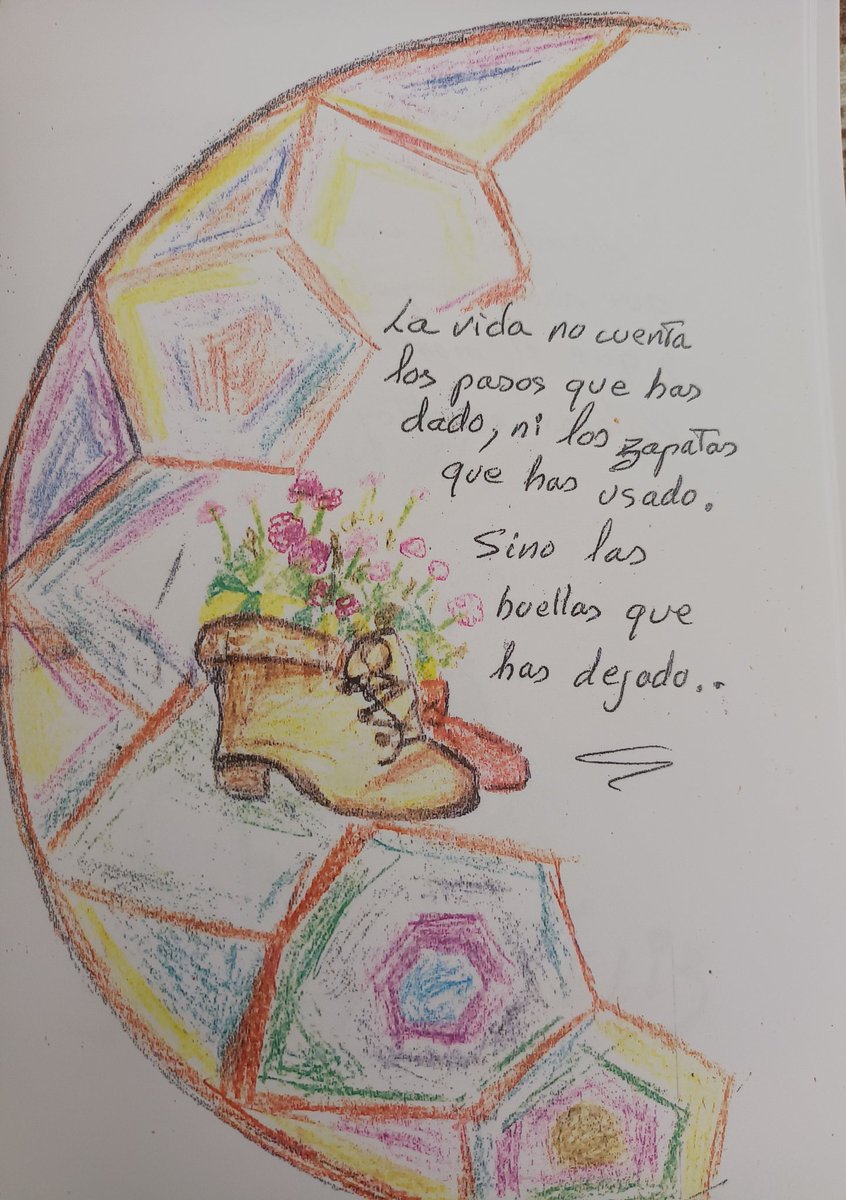 La vida no cuenta
los pasos que has
dado, ni los zapatos
que has usado.
Sino las
huellas que
has dejado..